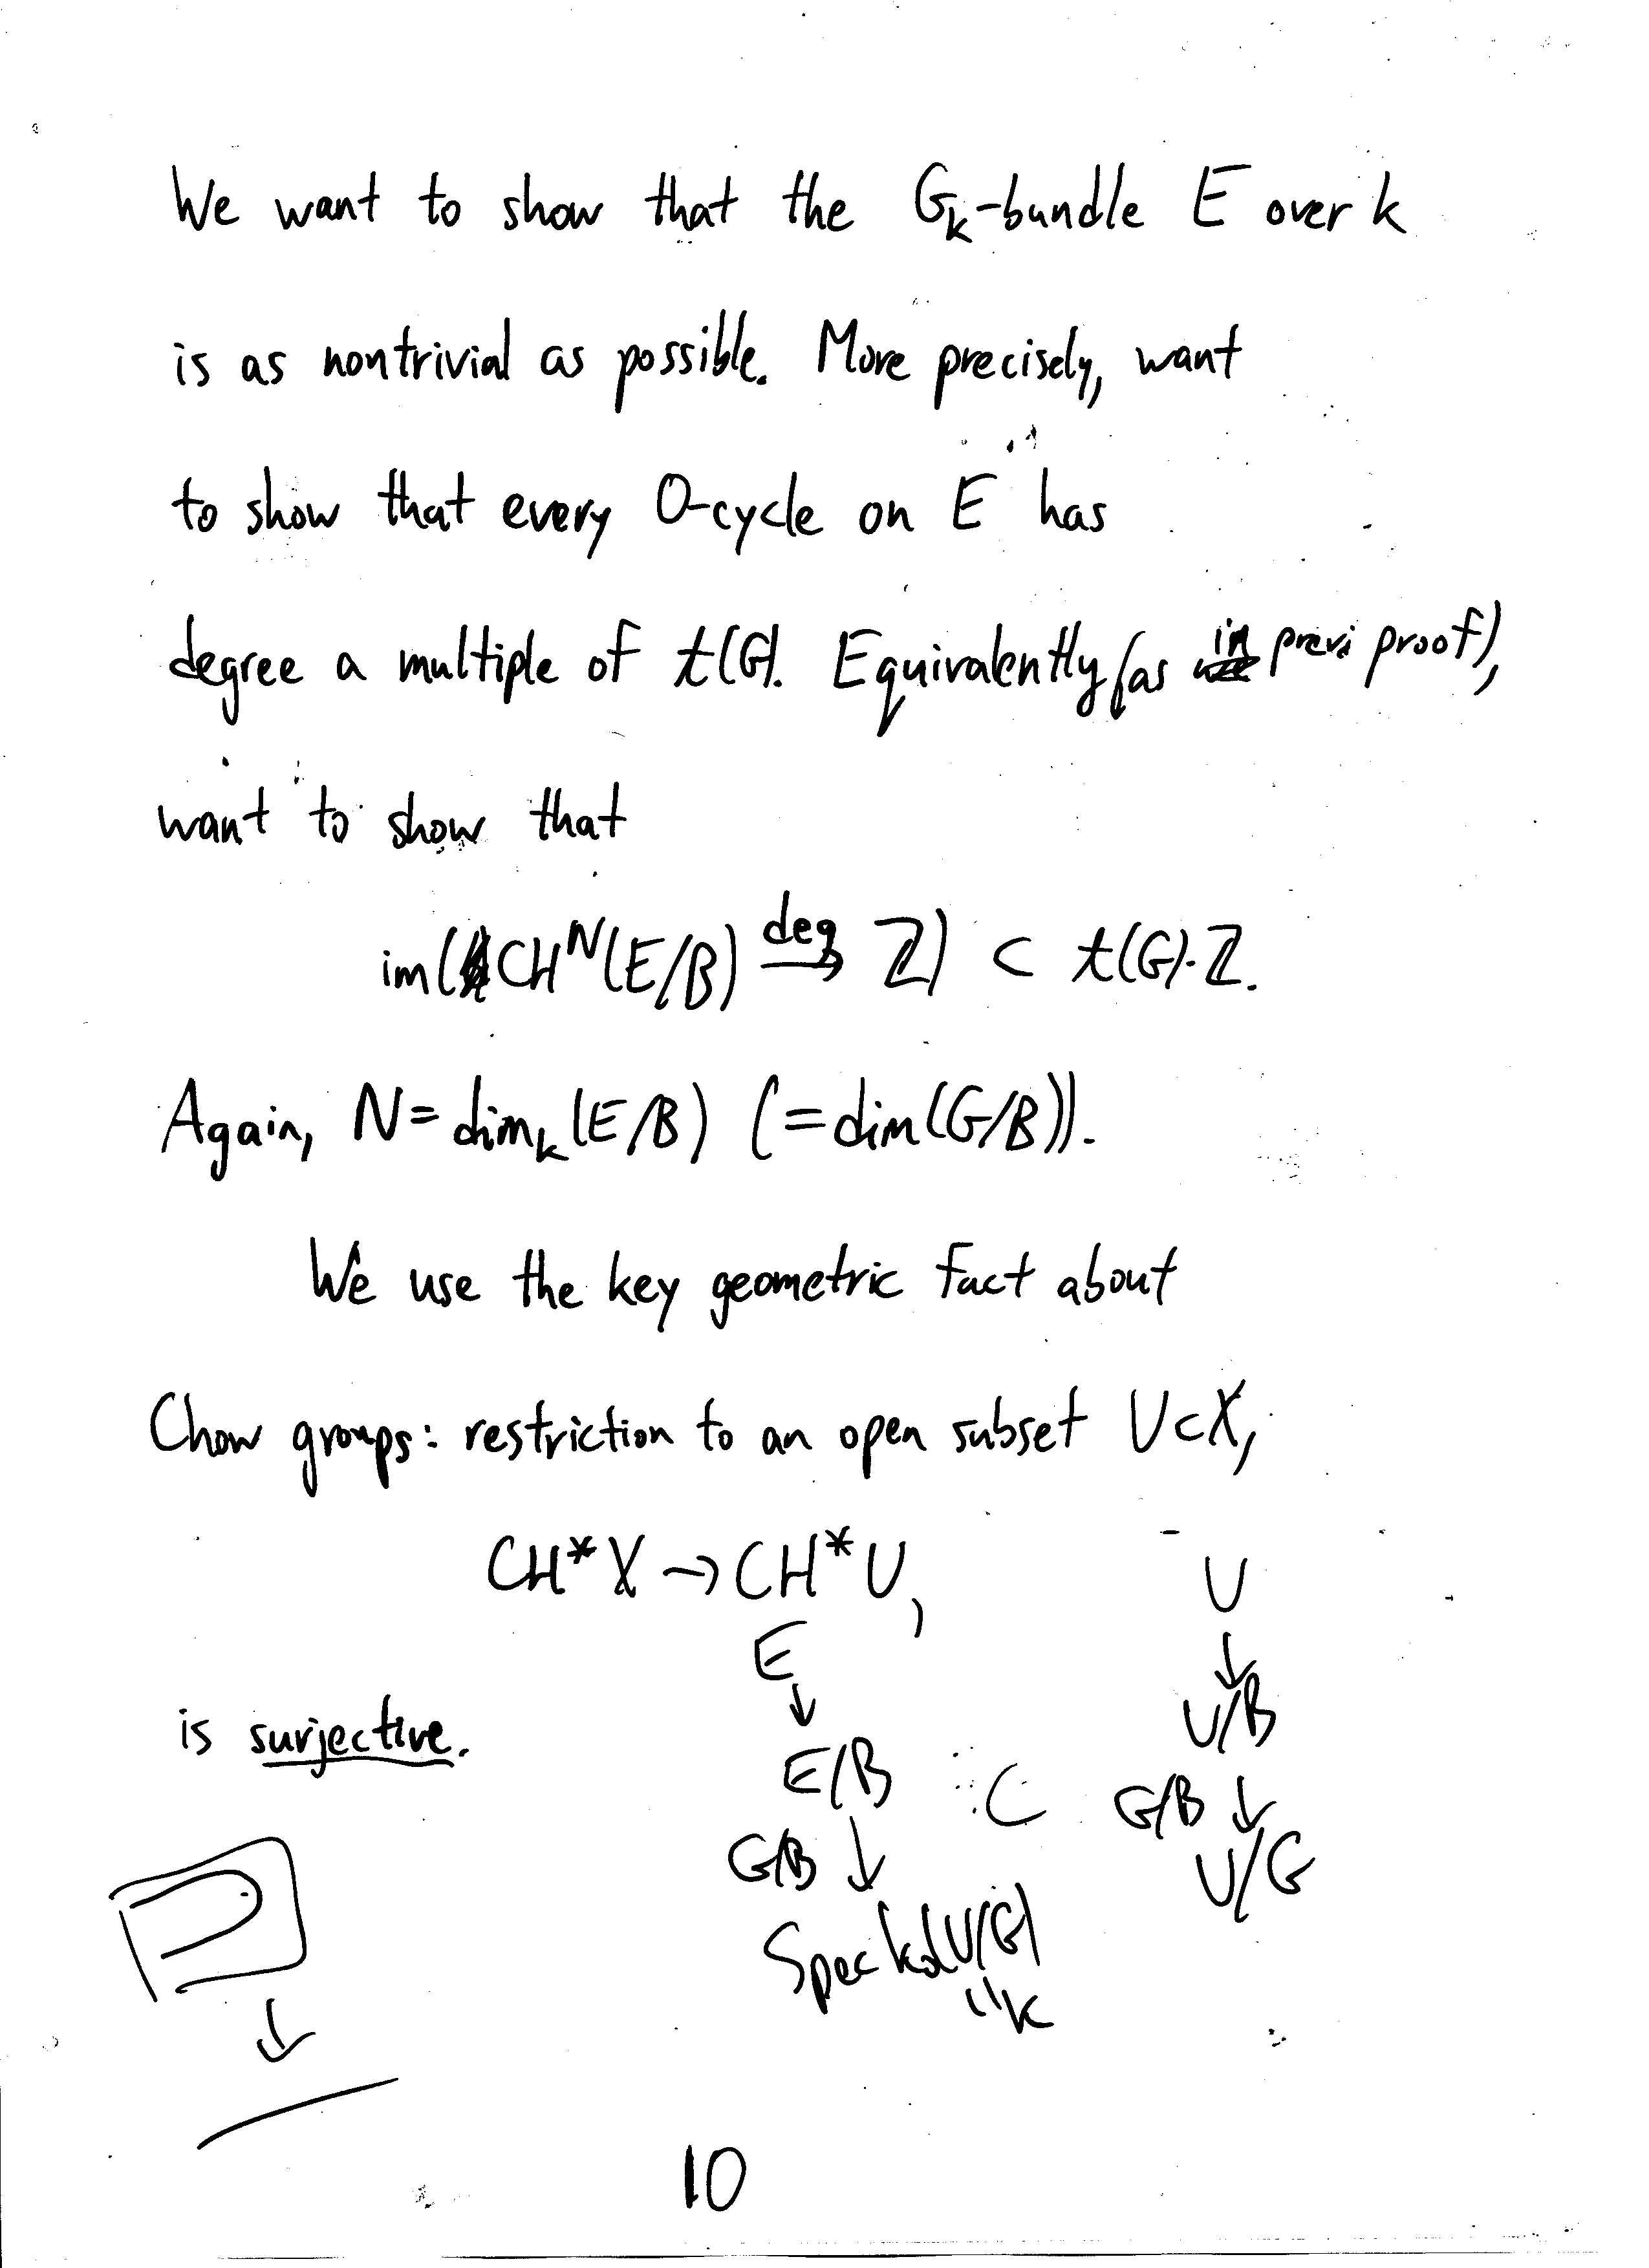 We want to show that the G_k-bundle E over k
is as nontrivial as possible. More precisely, want
to show that every 0-cycle on E has
degree a multiple of t(G). Equivalently (as in previ proof),
want to show that
im(CH^N(E/B) \xrightarrow{deg} ℤ) ⊂ t(G)·ℤ.
Again, N = dim_k(E/B) (= dim(G/B)).
We use the key geometric fact about
Chow groups: restriction to an open subset U⊂X,
CH*X → CH*U,
is surjective.
E
↓
E/B
G/B ↓
Spec k(U/G)
"k
⊂
U
↓
U/B
G/B ↓
U/G
10